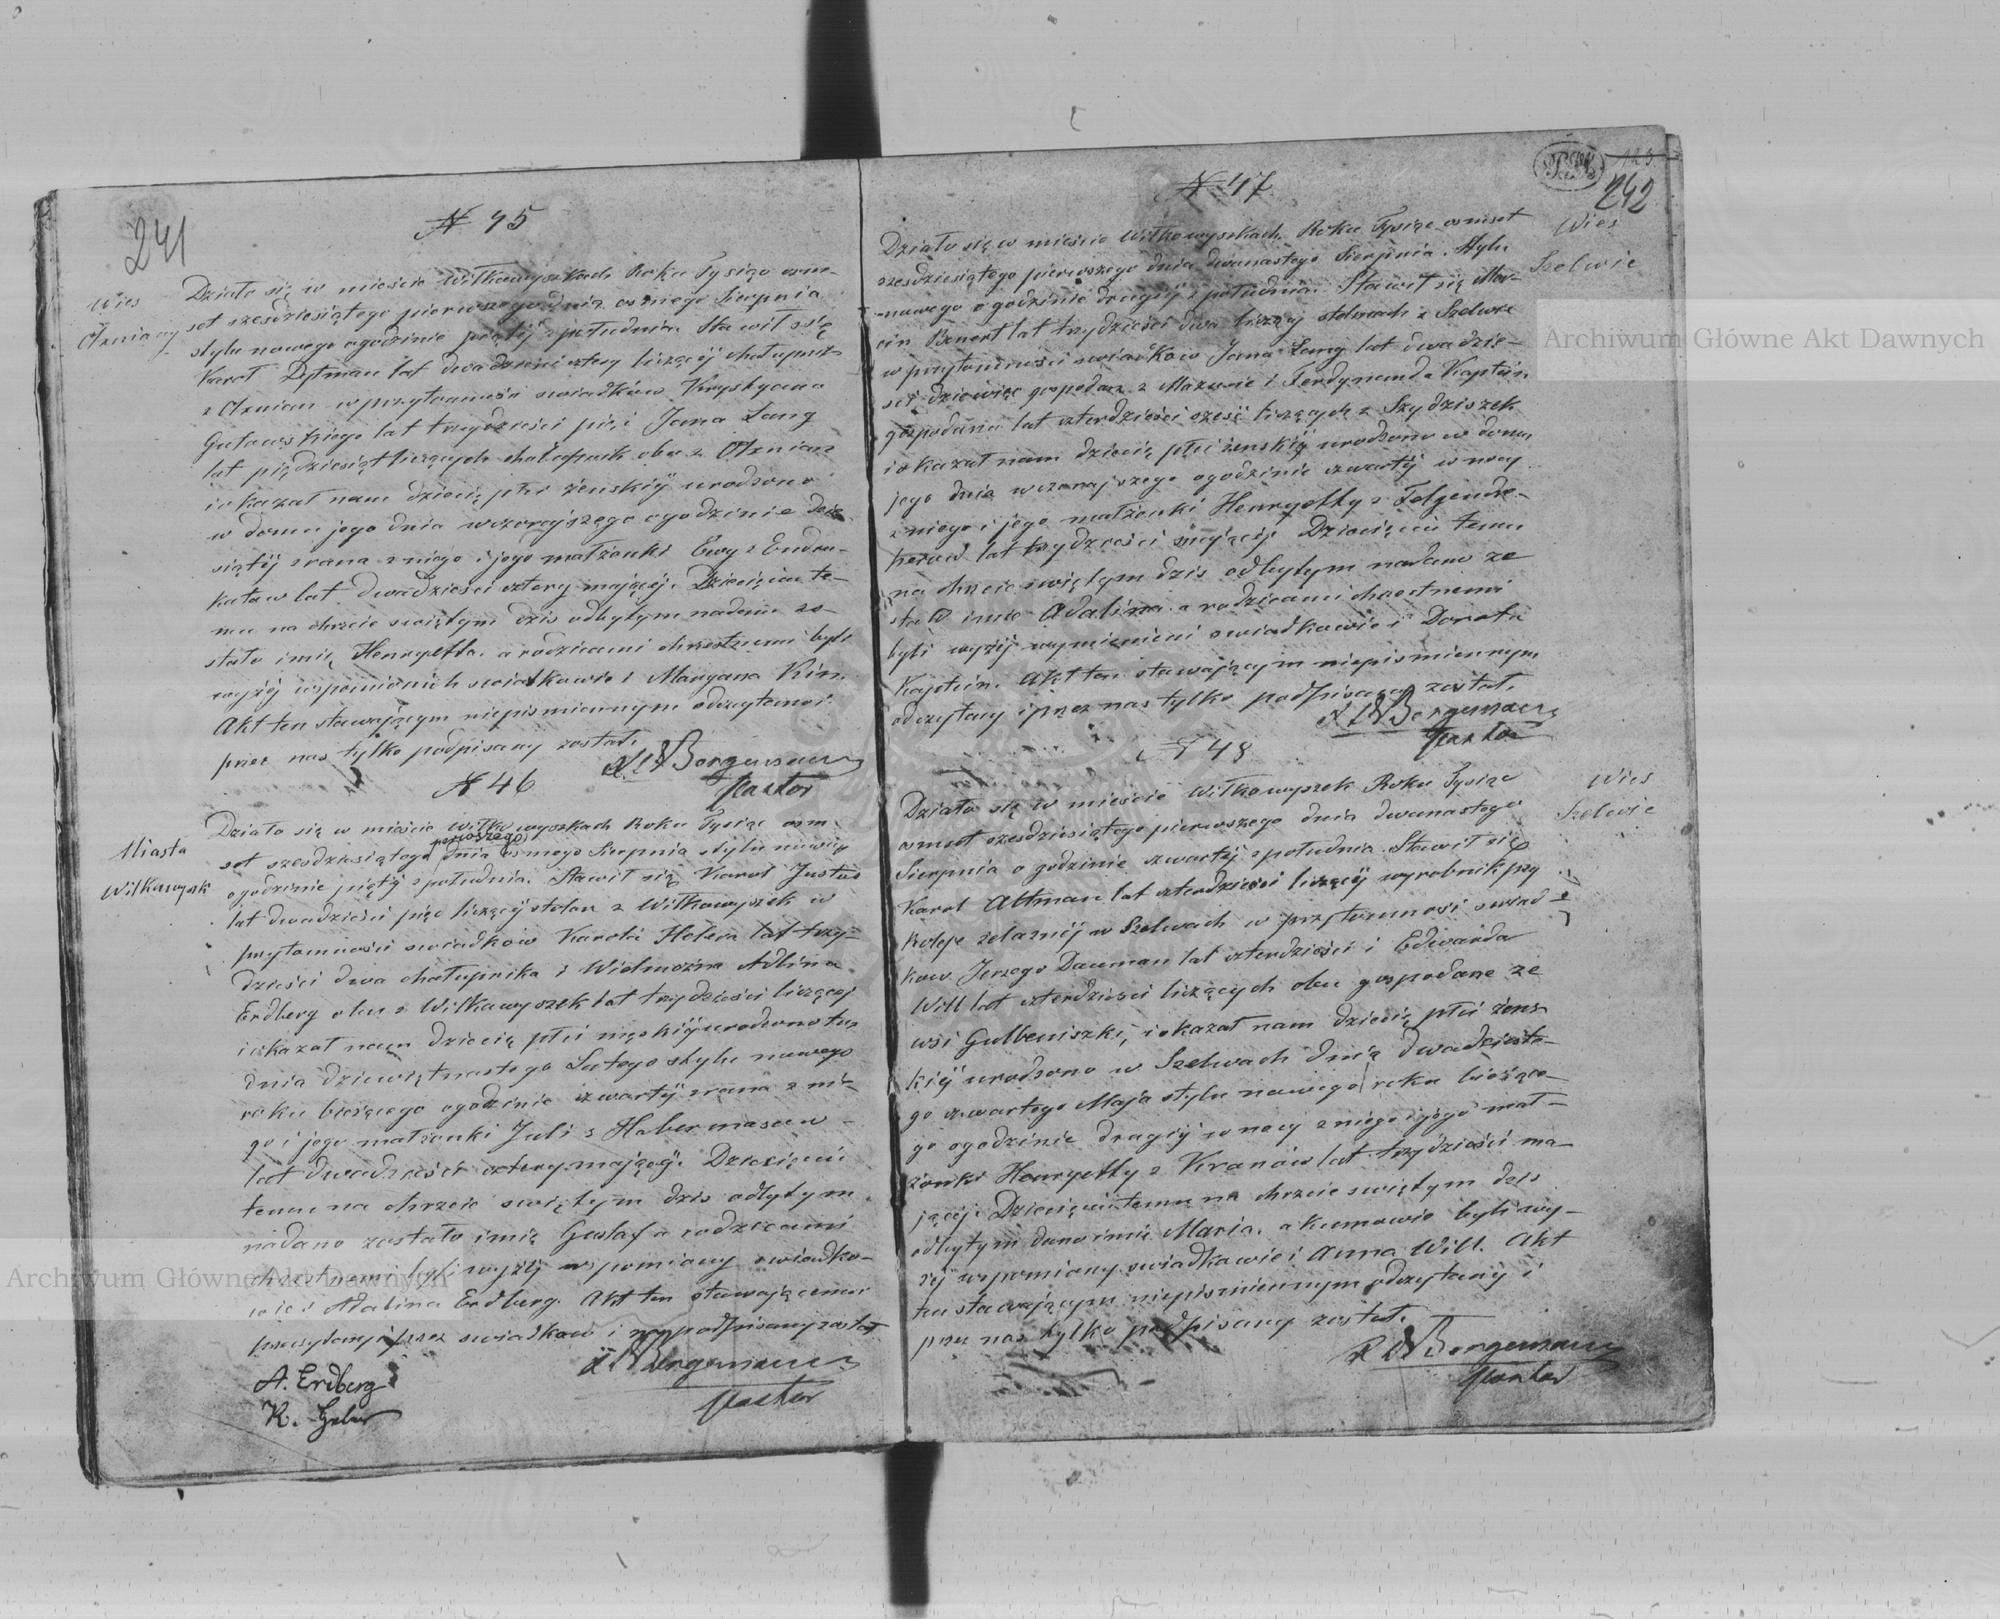 241
N 45
Wies
Ozniany
Działo się w mieście Wiłkowyszkach Roku Tysiąc osm-
set szesdziesiątego pierwszego dnia osmego Sierpnia
stylu nowego o godzinie piątéj z południa. Stawił się
Karol Dytman lat dwadzieścia cztery liczący chałupnik
z Oznian w przytomności swiadków Krystyana
Gutowskiego lat trzydzieści pięć i Jana Lang
lat pięćdziesiąt liczących chałupnik obu z Oznian
i okazał nam dziecię płci żeńskiéj urodzone
w domu jego dnia wczorajszego o godzinie dzie-
siątéj z rana z niego i jego małżonki Ewy z Endru-
katow lat dwadzieścia cztery mającéj. Dziecięciu te-
mu na chrzcie swiętym dzis odbytym nadano zo-
stało imię Henryetta. a rodzicami chrzestnemi byli
wyżéj wspomnionich swiadkowie i Maryana Kin.
Akt ten stawającym niepismiennym odczytanoi
przez nas tylko podpisany został.
Borgemann
Pastor
N 46
Miasta
Wilkowyszk
Działo się w mieście Wiłkowyszkach Roku Tysiąc osm-
set szesdziesiątego pierwszego dnia osmego Sierpnia stylu nowego
o godzinie piątéj z południa. Stawił się Karol Justus
lat dwadzieścia pięć liczący stolarz z Wiłkowyszek w
przytomności swiadków Karola Helera lat trzy-
dzieści dwa chałupnika i Wielmożna Adlina
Erdberg obu z Wilkowyszek lat trzydzieści liczącej
i okazał nam dziecię płci męskiéj urodzono tu
dnia dziewiętnastego Lutego stylu nowego
roku bieżącego o godzinie czwartéj z rana z nie-
go i jego małżonki Juli z Habermanow
lat dwadzieścia cztery mającéj. Dziecięciu
temu na chrzcie swiętym dzis odbytym
nadano zostało imię Gustaf a rodzicami
chrzestnemi byli wyżéj wspomiany swiadko-
wie i Adalina Erdberg. Akt ten stawającemu
przeczytany i przez swiadkow i nas podpisany został
A. Erdberg
K. Heler
Borgemann
Pastor
123
242
N 47
Wies
Szelwie
Działo się w mieście Wiłkowyszkach Roku Tysiąc osmset
szesdziesiątego pierwszego dnia dwunastego Sierpnia Stylu
nowego o godzinie drugiéj z południa. Stawił się Mar-
cin Benert lat trzydzieści dwa liczący stelmach z Szelwie
w przytomności swiadków Jana Lang lat dwadzie-
scie dziewięc gospodarz z Mazucie i Ferdynanda Kaptein
gospodarza lat czterdzieści szesć liczących z Szydziszek
i okazał nam dziecię płci żenskiéj urodzono w domu
jego dnia wczorajszego o godzinie czwartéj w nocy
z niego i jego małżonki Henryetty z Folgende-
herow lat trzydzieści mającéj. Dziecięciu temu
na chrzcie swiętym dzis odbytym nadano zo
stało imie Adalina a rodzicami chrzestnemi
byli wyżéj wymienieni swiadkowie i Dorota
Kaptein. Akt ten stawającym niepismiennym
odczytany i przez nas tylko podpisany został.
Borgemann
Pastor
N 48
Wies
Szelwie
Działo się w mieście Wiłkowyszek Roku Tysiąc
osmset szesdziesiątego pierwszego dnia dwunastego
Sierpnia o godzinie czwartéj z południa. Stawił się
Karol Altman lat czterdzieści liczący wyrobnik przy
koleje żelaznéj w Szelwach w przytomności swiad-
kow Jerzego Dauman lat czterdzieści i Edwarda
Will lat czterdzieści liczących obu gospodarze ze
wsi Gulbeniszki, i okazał nam dziecię płci żens-
kiéj urodzono w Szelwach dnia dwudzieste-
go czwartego Maja stylu nowego roku bieżące-
go o godzinie drugiéj w nocy z niego i jego mał-
żonki Henryetty z Kranów lat trzydzieści ma-
jącéj. Dziecięciu temu na chrzcie swiętym dzis
odbytym dano imie Maria. a kumowie byli wy-
żéj wspomiany swiadkowie i Anna Will. Akt
ten stawającym niepismiennym odczytany i
przez nas tylko podpisany został.
Borgemann
Pastor
Archiwum Główne Akt Dawnych
Archiwum Główne Akt Dawnych